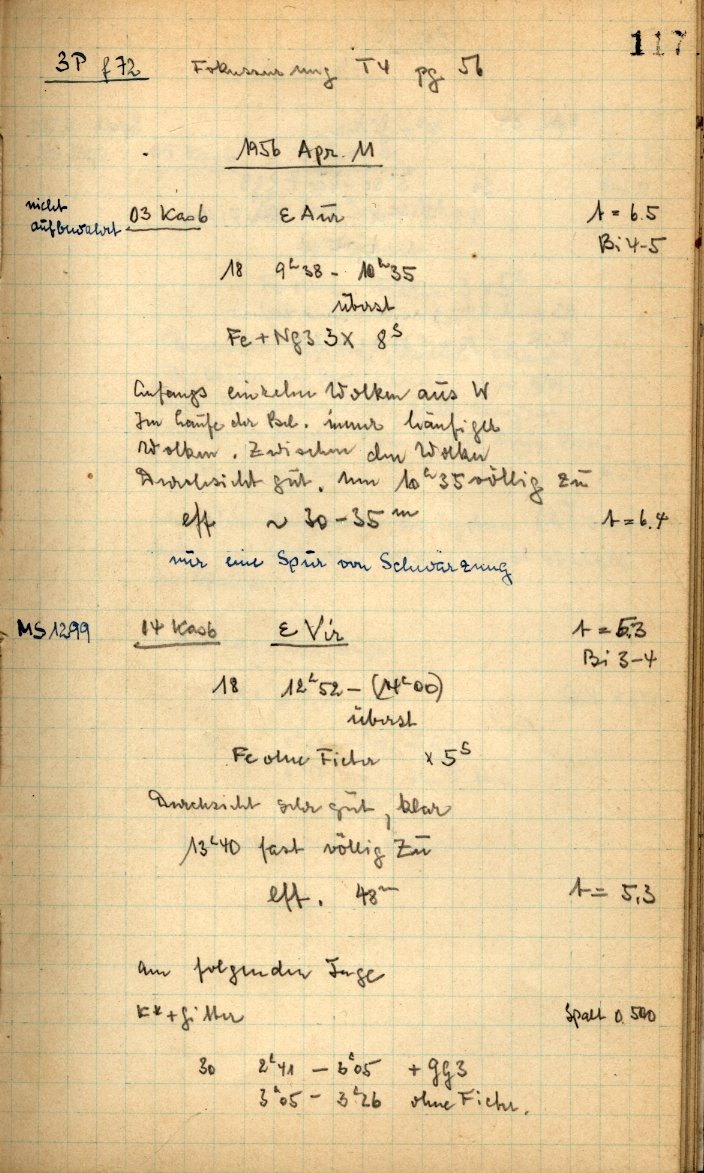 117
3P f72 Fokussierung T4 pg. 56
1956 Apr. 11
nicht
aufbewahrt
03 Kasb ε Aur t = 6.5
Bi 4-5
18 9ʰ38 - 10ʰ35
überst
Fe + Ng3 3x 8ˢ
Anfangs einzelne Wolken aus W
Im Laufe der Bel. immer häufiger
Wolken. Zwischen den Wolken
Durchsicht gut. Um 10ʰ35 völlig zu
eff ~ 30-35ᵐ t = 6.4
nur eine Spur von Schwärzung
MS 1299 04 Kasb ε Vir t = 5.3
Bi 3-4
18 12ʰ52 - (14ʰ00)
überst
Fe ohne Filter x 5ˢ
Durchsicht sehr gut, klar
13ʰ40 fast völlig zu
eff. 48ᵐ t = 5,3
am folgenden Tage
K* + Gitter Spalt 0.500
30 2ʰ41 - 3ʰ05 + gg3
3ʰ05 - 3ʰ26 ohne Filter.